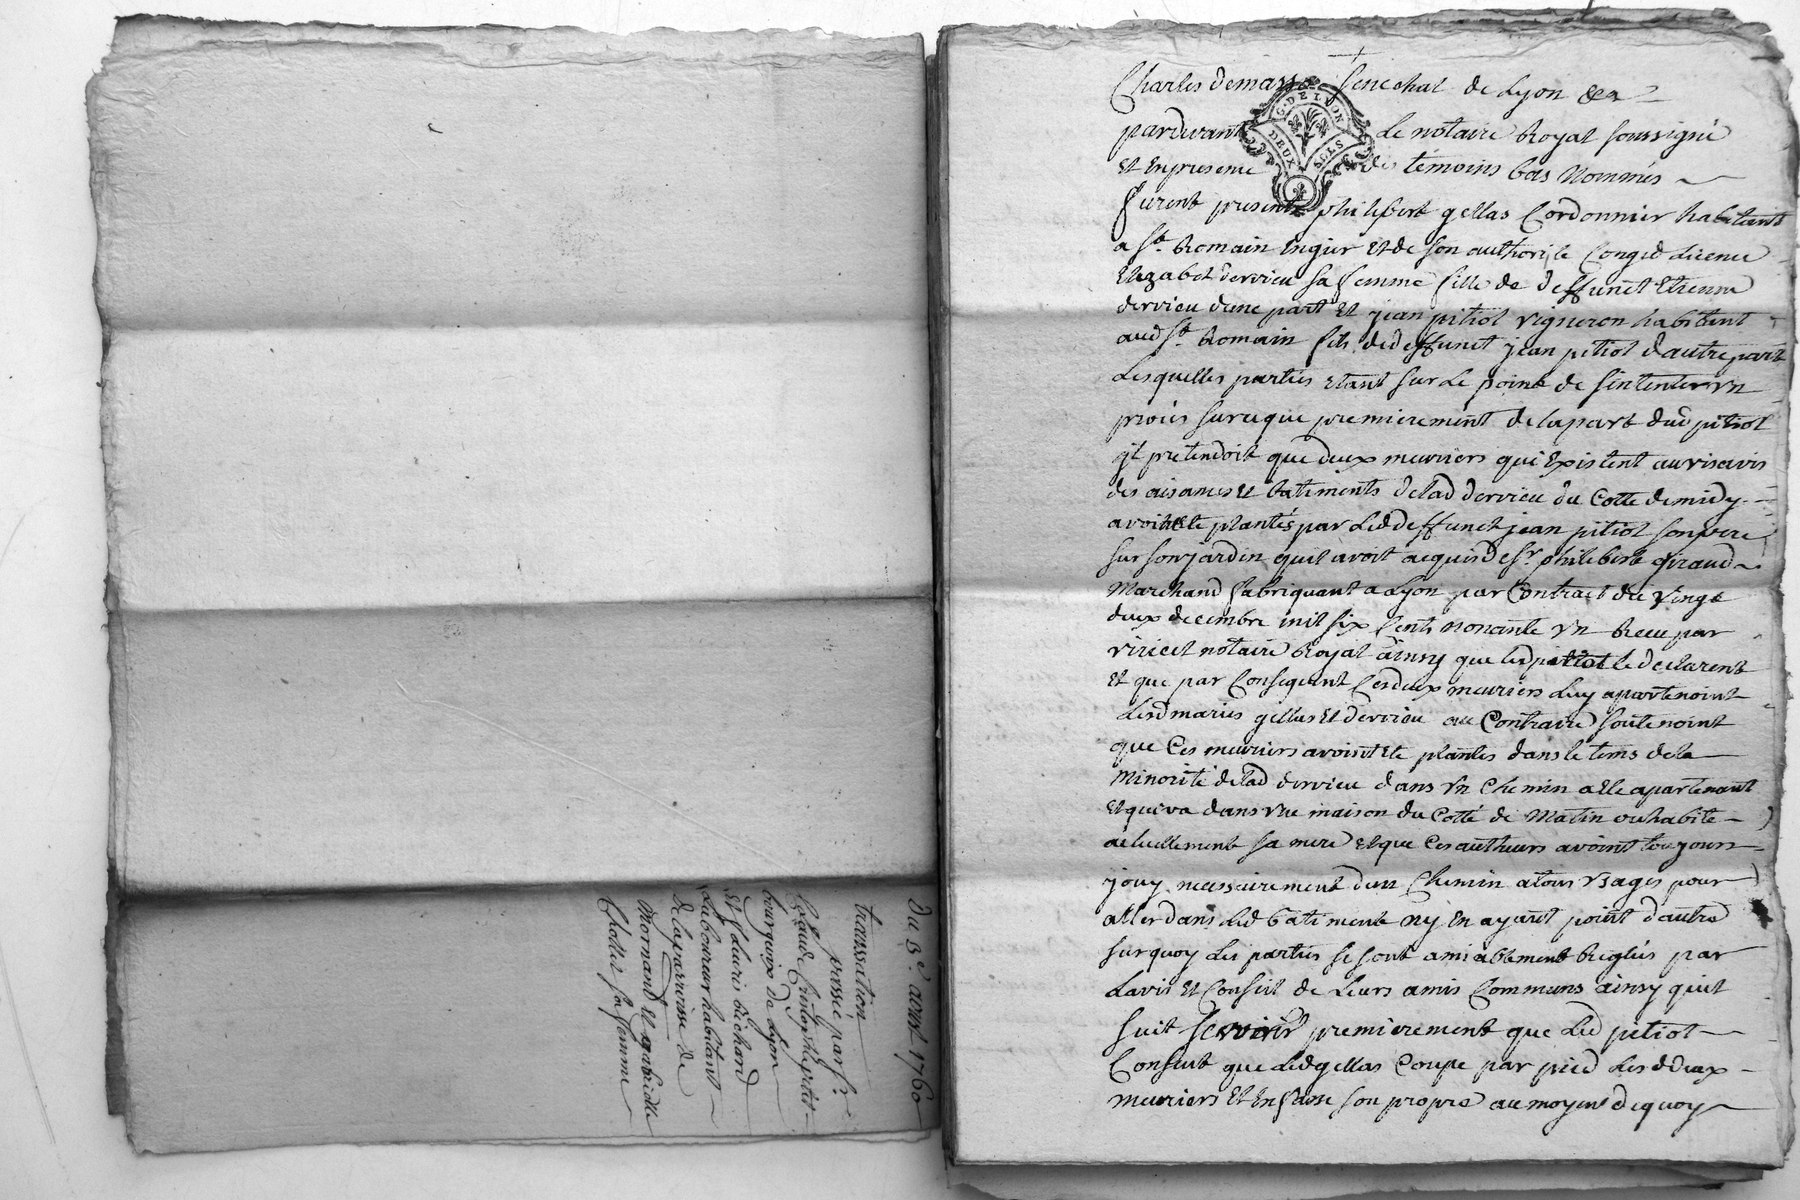 du 3e. aoust 1760
transaction
passé par sr.
Claude
bourgeois de Lyon
et fleurie bechard
Laboureur habitant
de la parroisse de
Mornand et gabrielle
chollet sa femme
Charles demasso senechal de Lyon &a
pardevant le notaire Royal soussigné
et en presence des témoins bas nommés
furent presents philibert gellas Cordonnier habitant
a st. Romain en gier et de son authorité Congé Licence
Elizabet dervieu sa femme fille de deffunct Etienne
dervieu d'une part et jean pitiot vigneron habitant
aud st. Romain fils de deffunct jean pitiot d'autre part
Lesquelles parties etant sur le point de sintenter un
procés sur ce que premierement de la part dud pitiot
jl pretendoit que deux meuriers qui existent au vis avis
des aisances et batiments de lad dervieu du Cotté de midy
avoint eté plantés par led deffunct jean pitiot son pere
sur son jardin quil avoit acquis de sr. philibert giraud
Marchand fabriquant a Lyon par Contract du vingt
deux decembre mil six cents nonante un Receu par
viricel notaire Royal ainsy que led pitiot le declarent
et que par Consequent Ces deux meuriers luy apartenoint
Lesd mariés gellas et dervieu au Contraire soutenoint
que Ces meuriers avoint eté plantés dans le tems de la
Minorité de lad dervieu dans un Chemin a elle apartenant
et qui va dans une maison du Cotté de Matin ou habite
actuellement sa mere et que Ces autheurs avoint toujours
jouy necessairement d'un Chemin a tous usages pour
aller dans led batiment ny en ayant point d'autre
surquoy les parties se sont amiablement Reglés par
Lavis et Conseil de leurs amis Communs ainsy quil
suit scavoir premierement que led pitiot
Consent que led gellas Coupe par pied lesd deux
meuriers et en fasse son propre au moyend de quoy